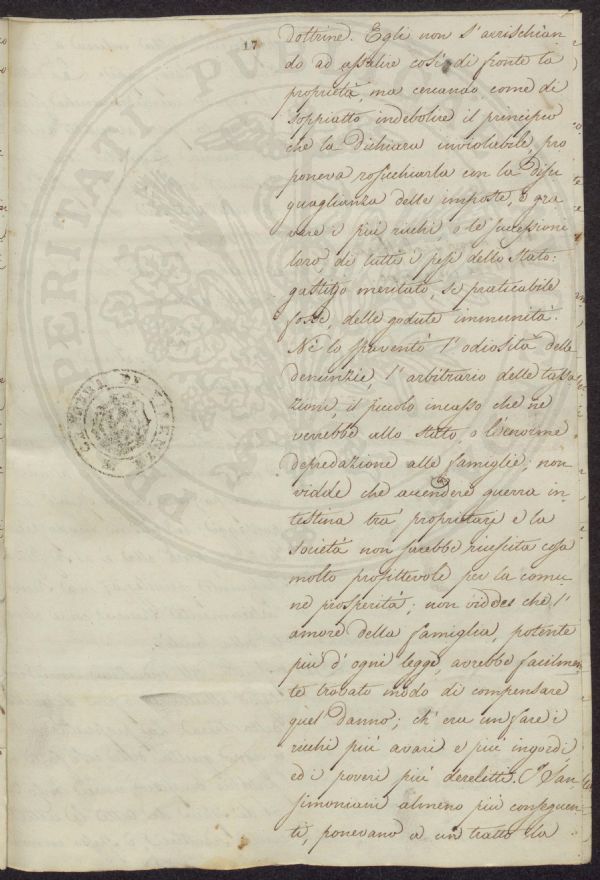 17
dottrine. Egli non s'arrischian
do ad assalire così di fronte la
proprietà, ma cercando come di
soppiatto indebolire il principio
che la dichiara inviolabile, pro
poneva rosichiarla con la disu
guaglianza delle imposte, o gra
vare i più ricchi, o le successioni
loro, di tutti i pesi dello Stato:
gastigo meritato, se praticabile
fosse, delle godute immunità.
Nè lo spaventò l'odiosità delle
denunzie, l'arbitrario delle tassa
zioni, il piccolo incasso che ne
verrebbe allo Stato, o l'enorme
depredazione alle famiglie; non
vidde che accendere guerra in
testina trà proprietarj e la
società non sarebbe riuscita cosa
molto profittevole per la comu
ne prosperità; non vidde che l'
amore della famiglia, potente
più d'ogni legge, avrebbe facilmen
te trovato modo di compensare
quel danno; ch'era un fare i
ricchi più avari e più ingordi
ed i poveri più derelitti. I San
simoniani almeno più conseguen
ti, ponevano a un tratto la